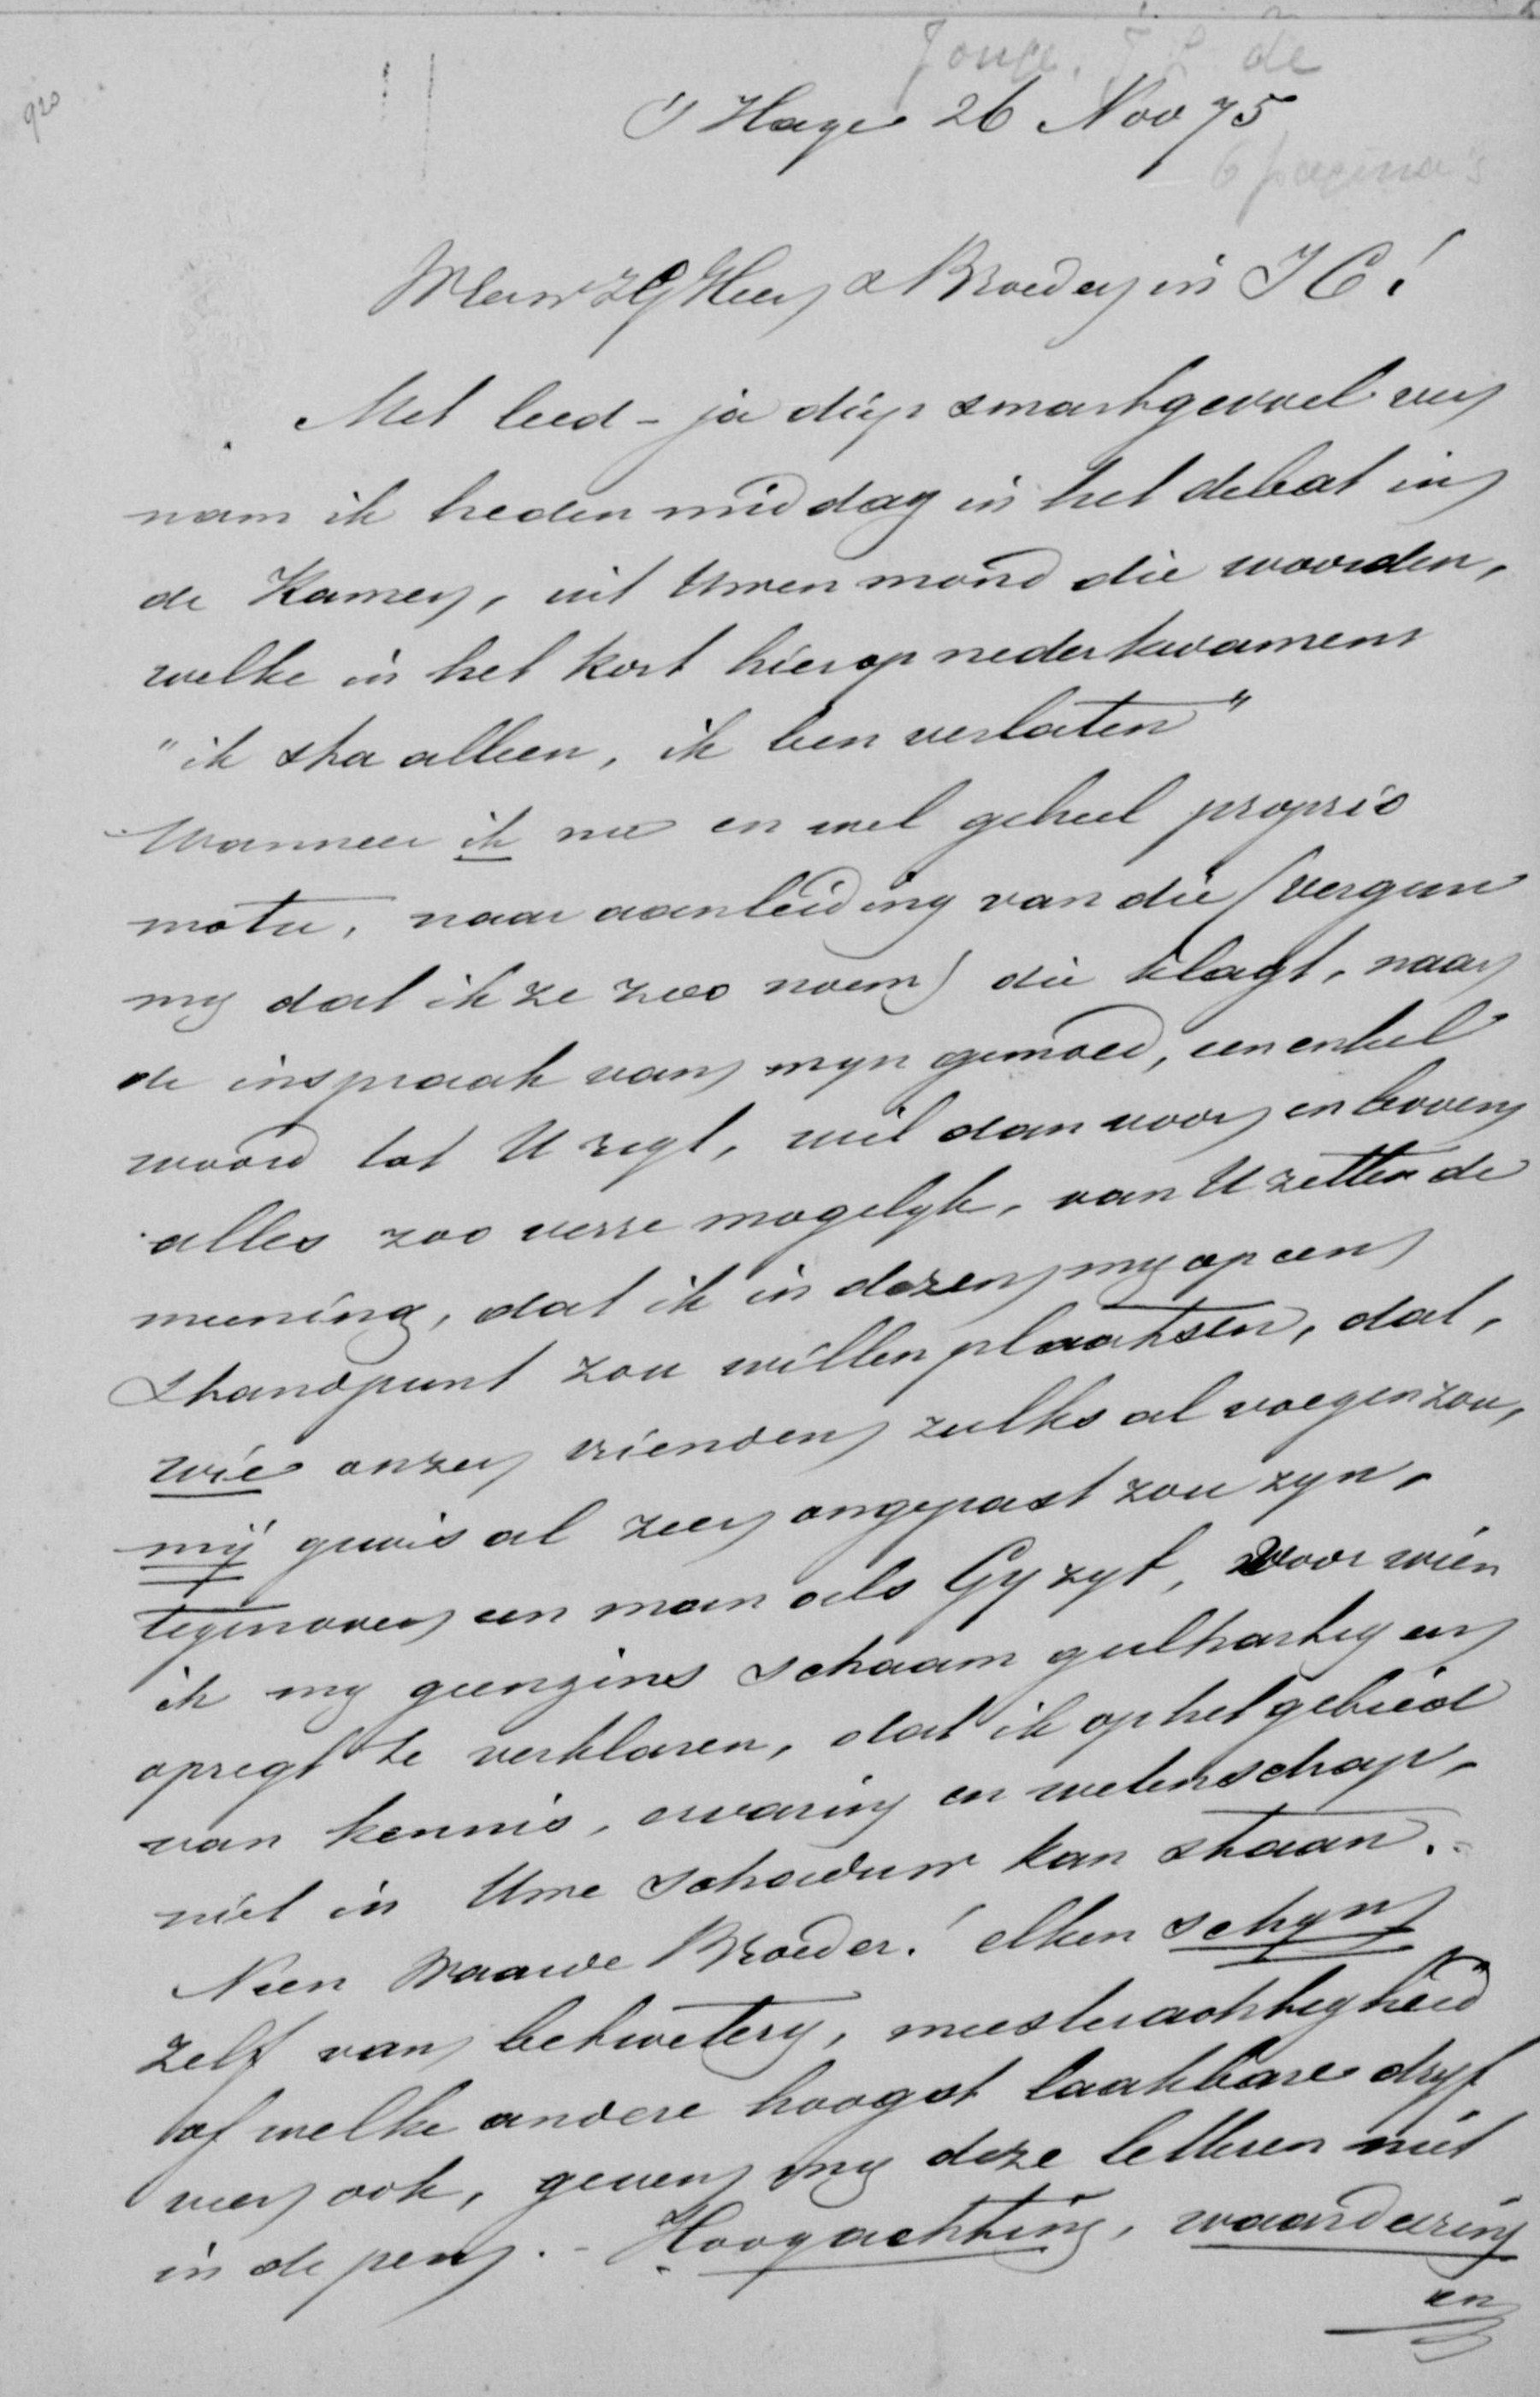 Jonge. J L de
920
's Hage 26 Nov 75
6 pagina's
WelEerw ZG Heer & Broeder in J C!
Met leed - ja diep smartgevoel ver
nam ik heden middag in het debat in
de Kamer, uit Uwen mond die woorden,
welke in het kort hierop nederkwamen
"ik sta alleen, ik ben verlaten"
Wanneer ik nu en wel geheel proprio
motu, naar aanleiding van die (vergun
my dat ik ze zoo noem) die klagt, naar
de inspraak van myn gemoed, een enkel
woord tot U rigt, wil dan voor en boven
alles zoo verre mogelyk, van U zetten de
meening, dat ik in dezen my op een
standpunt zou willen plaatsen, dat,
wie onzer vrienden zulks al voegen zou,
mij gewis al zeer ongepast zou zyn,
tegenover een man als Gy zyt, voor wien
ik my geenzins schaam gulhartig en
opregt te verklaren, dat ik op het gebied
van kennis, ervaring en wetenschap,
niet in Uwe schaduw kan staan.
Neen Waarde Broeder! elken schyn
zelf van betwetery, meesterachtigheid
of welke andere hoogst laakbare dryf
veer ook, geven my deze letteren niet
in de pen. - Hoogachting, waardeering
en